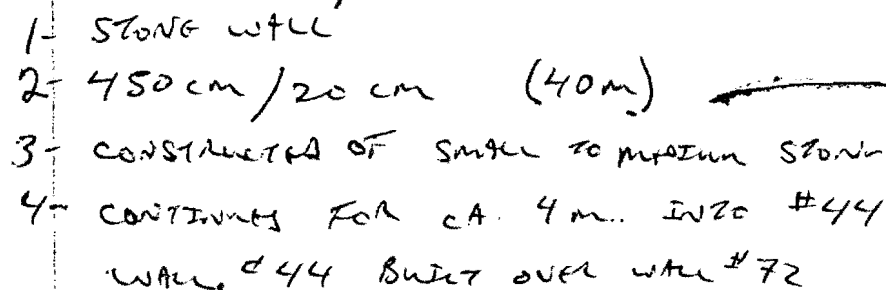 1- STONE WALL
2- 450 cm/20 cm (40m)
3- CONSTRUCTED OF SMALL TO MEDIUM STONE
4- CONTINUES FOR CA. 4 m. INTO #44
WALL. #44 BUILT OVER WALL #72